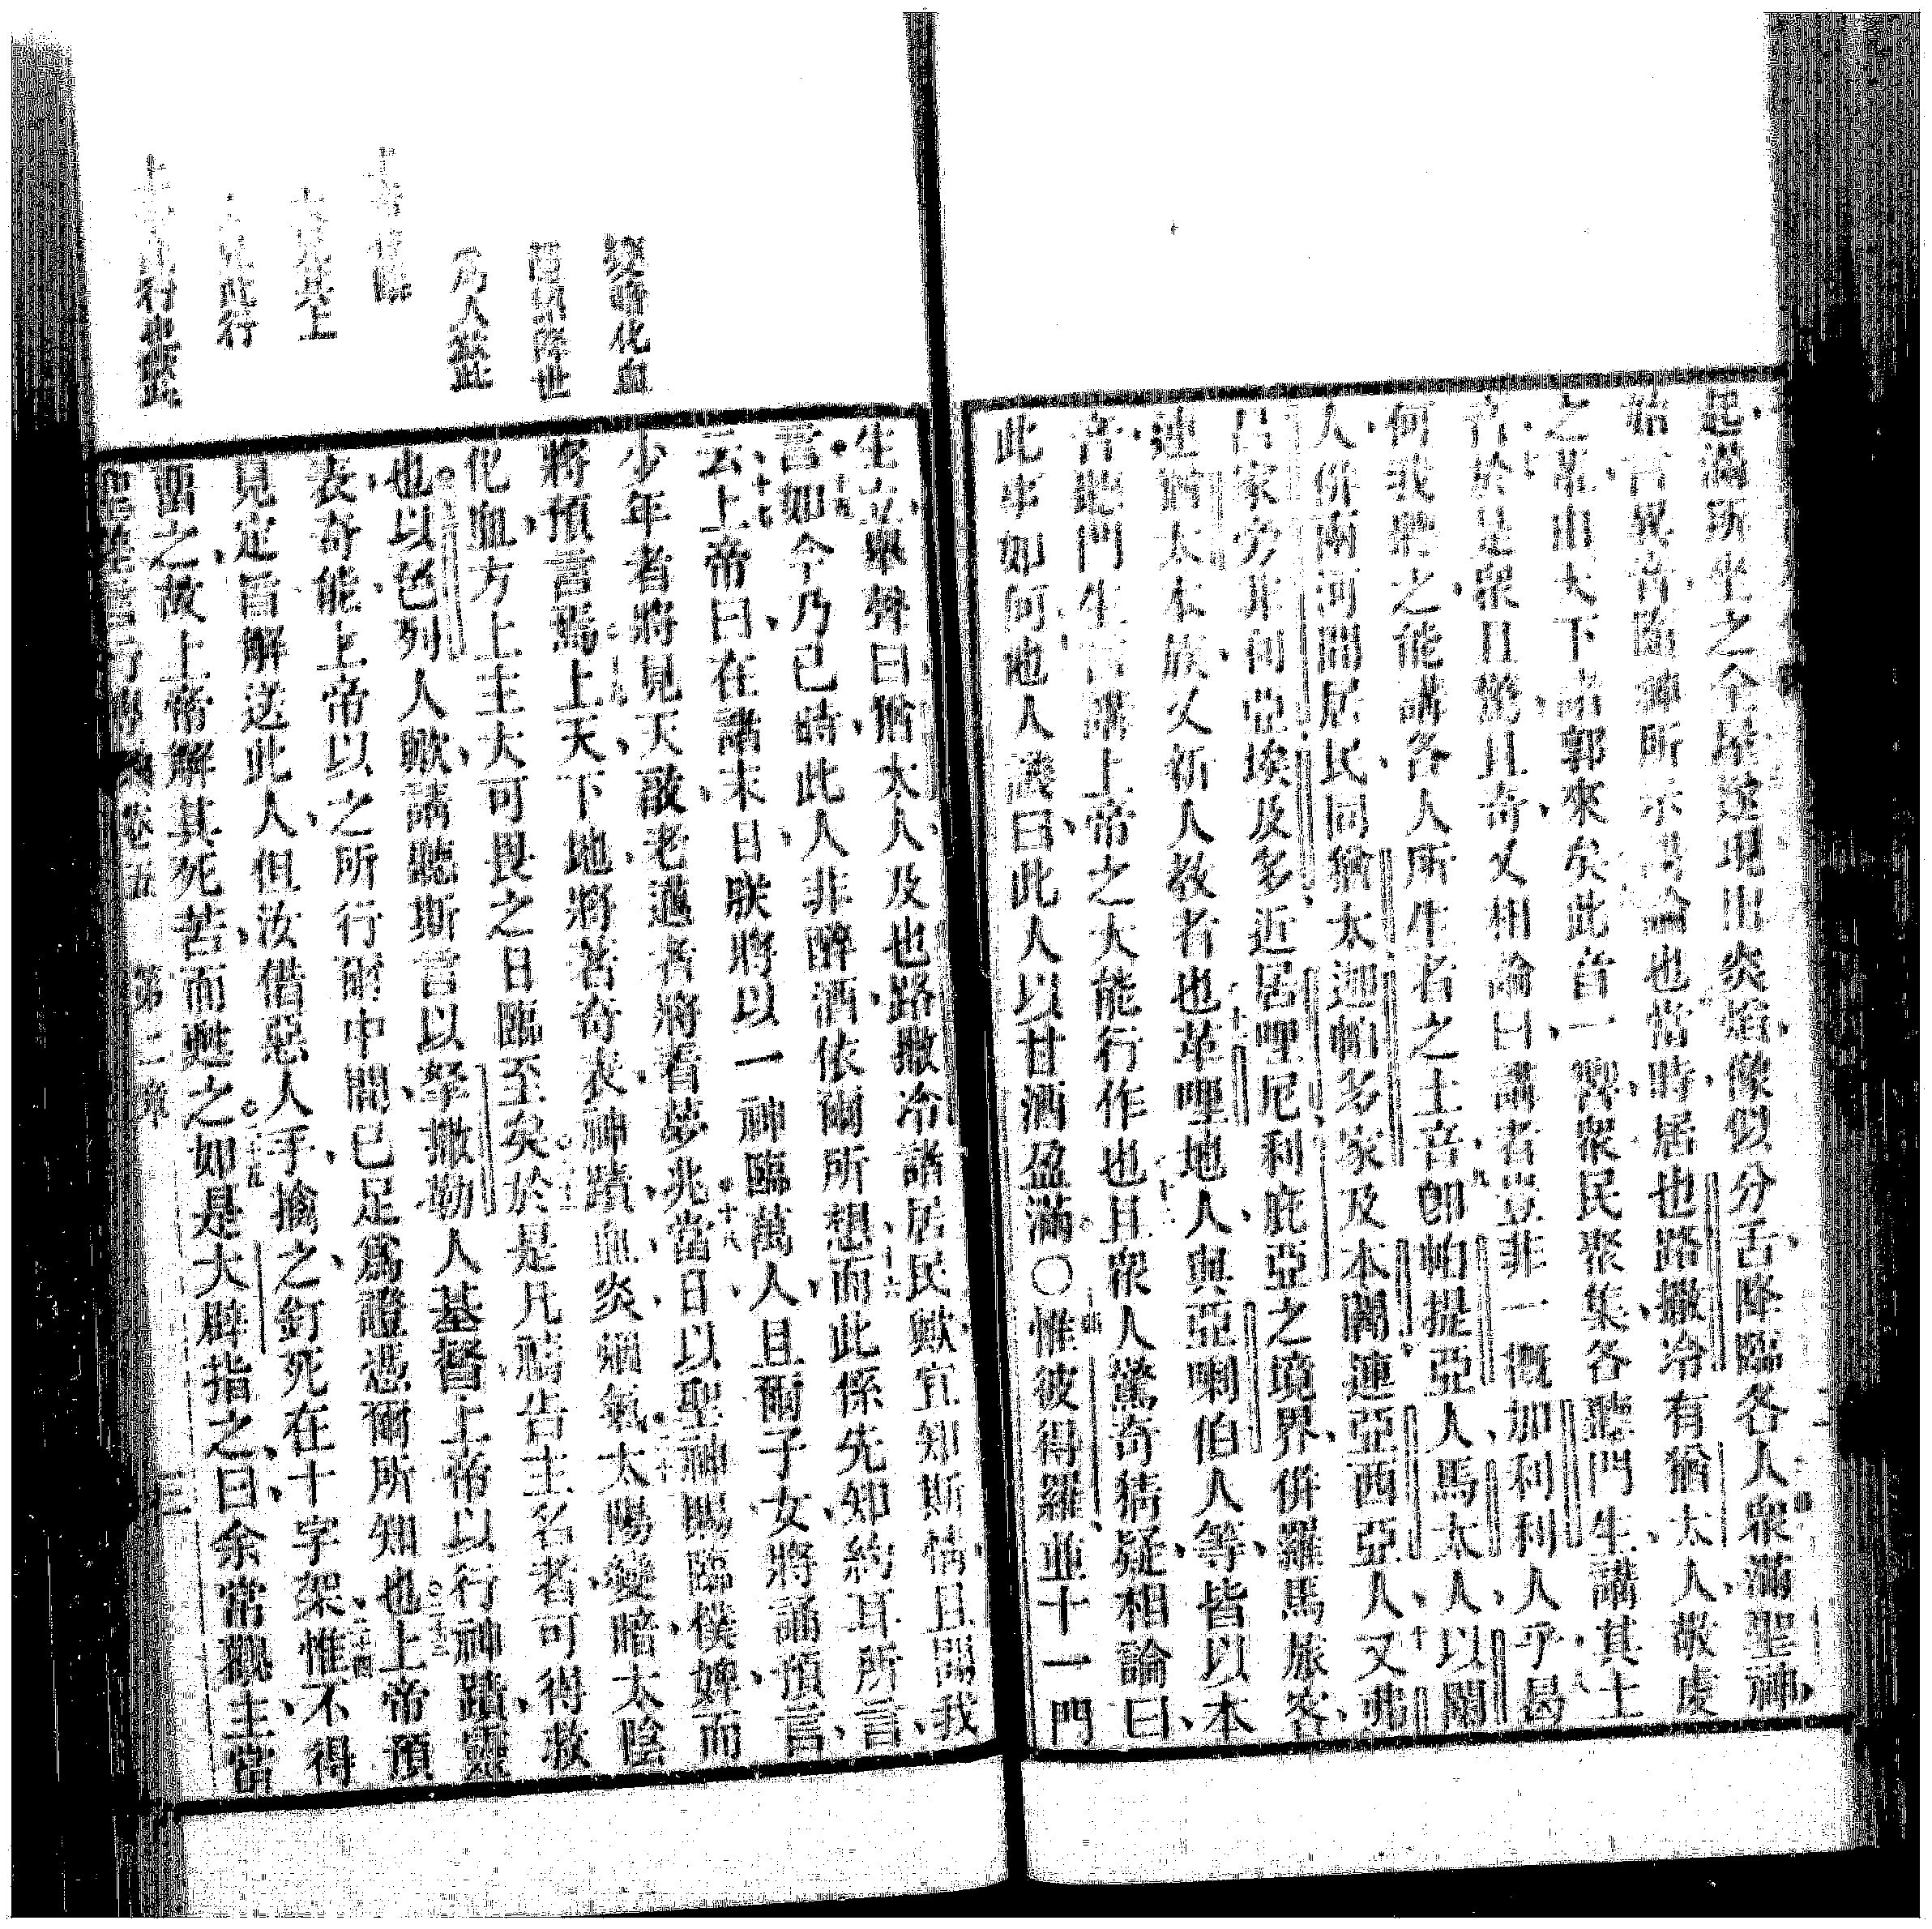 起滿所坐之全屋遂現出炎焰像似分舌降臨各人衆滿聖神
始言異音隨神所示言論也當時居也路撒冷有猶太人敬虔
之輩由天下諸郭來矣此音一響衆民聚集各聽門生講其土
音於是衆且驚且奇又相論曰講者豈非一概加利利人乎曷
何我聽之能講各人所生者之土音卽帕提亞人馬太人以闌
人併兩河間居民同猶太迦帕多家及本闍連亞西亞人又弗
呂家旁非利亞埃及多近居哩尼利庇亞之境界併羅馬旅客
連猶太本族乂新人教者也革哩地人與亞喇伯人等皆以本
音聽門生言講上帝之大能行作也且衆人驚奇猜疑相論曰
此事如何也他人譏曰此人以甘酒盈滿○惟彼得羅並十一門
生立舉聲曰猶太人及也路撒冷諸居民歟宜知斯情且聞我
言如今乃已時此人非醉酒依爾所想而此係先知約耳所言
云上帝曰在諸末日朕將以一神臨萬人且爾子女將誦預言
少年者將見天啟老邁者將看夢兆當日以聖神賜臨僕婢而
將預言焉上天下地將著奇表神蹟血炎烟氣太陽變暗太陰
化血方上主大可畏之日臨至矣於是凡禱告主名者可得救
也以色列人歟請聽斯言以拿撒勒人基督上帝以行神蹟靈
表奇能上帝以之所行爾中間已足爲證憑爾所知也上帝預
見定旨解送此人但汝借惡人手擒之釘死在十字架惟不得
畱之故上帝解其死苦而甦之如是大辟指之曰余常觀主當
卷五 第二章 三
變暗化血
降世
爲人